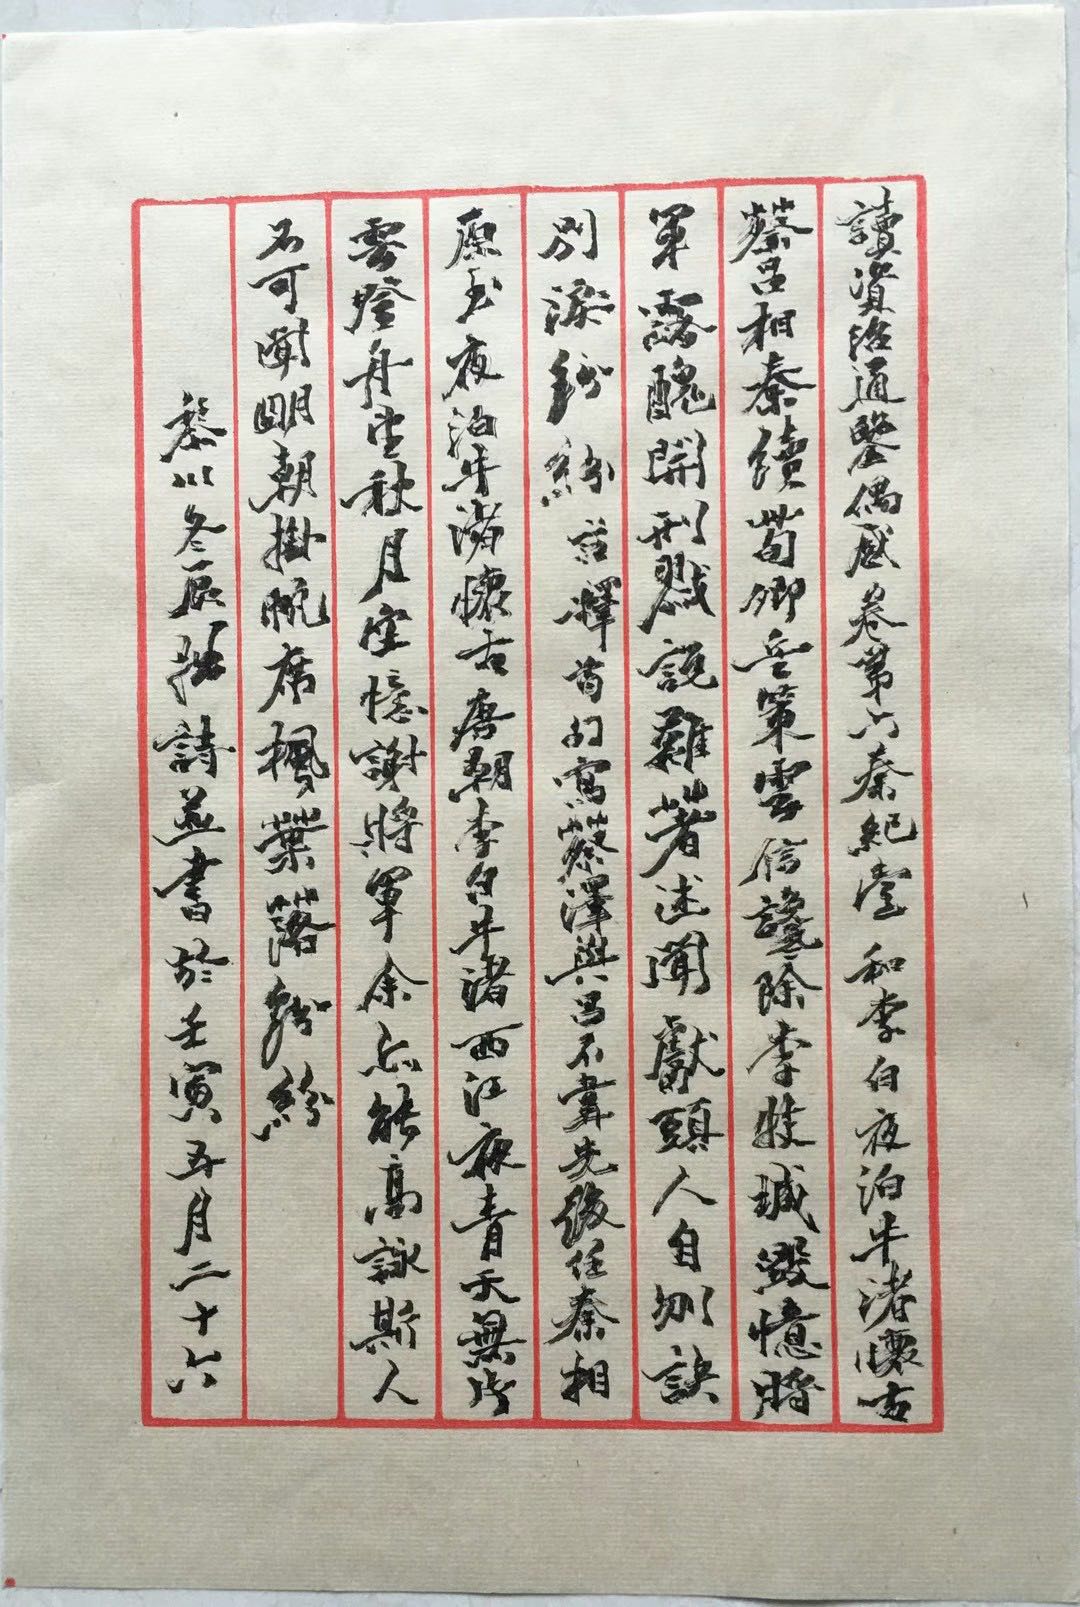 讀資治通鑒偶感卷第六秦紀壹和李白夜泊牛渚懷古
蔡呂相秦續荀卿兵策雲信讒除李牧城毀憶將
軍露醜開刑戮說難著述聞獻頭人自刎訣
別淚紛紛註釋首句寫蔡澤與呂不韋先後任秦相
原玉夜泊牛渚懷古唐朝李白牛渚西江夜青天無片
雲登舟望秋月空憶謝將軍余亦能高詠斯人
不可聞明朝掛帆席楓葉落紛紛
黎川冬辰拙詩並書於壬寅五月二十六